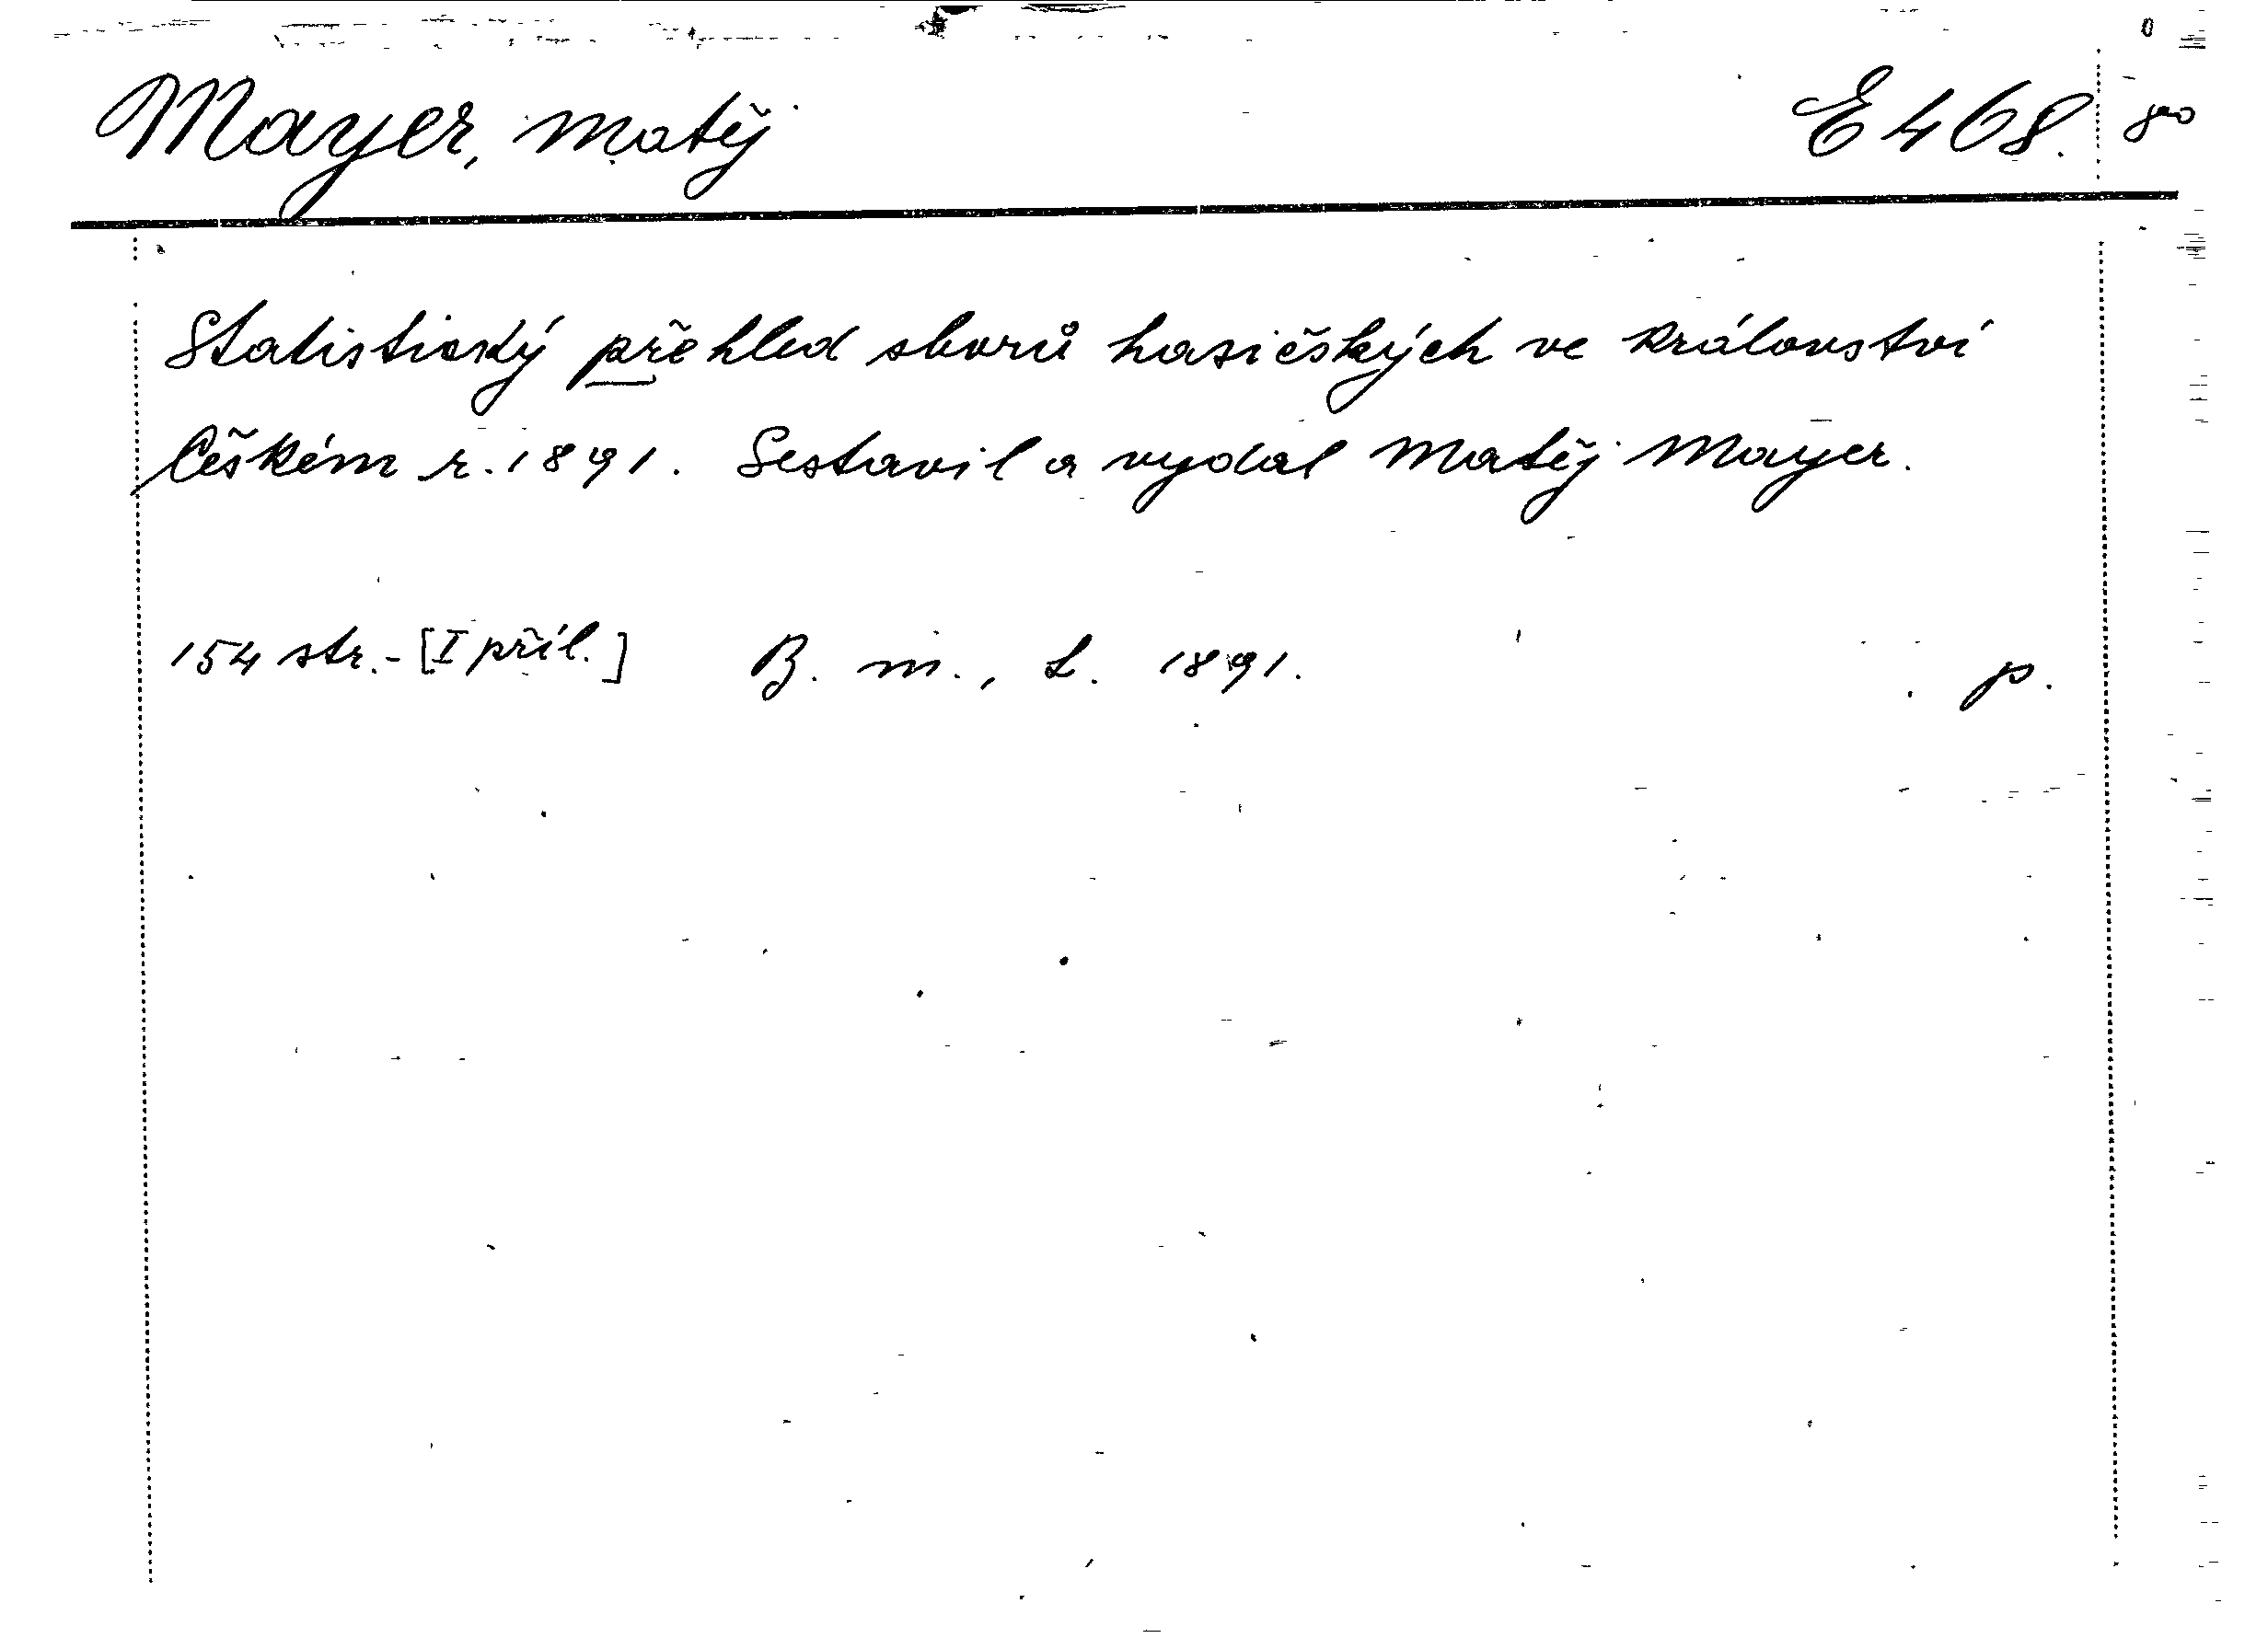 Mayer, Matěj E 468. 8vo
Statistický přehled sborů hasičských ve království
Českém r. 1891. Sestavil a vydal Matěj Mayer.
154 str. - [I příl.] B. m., t. 1891. p.